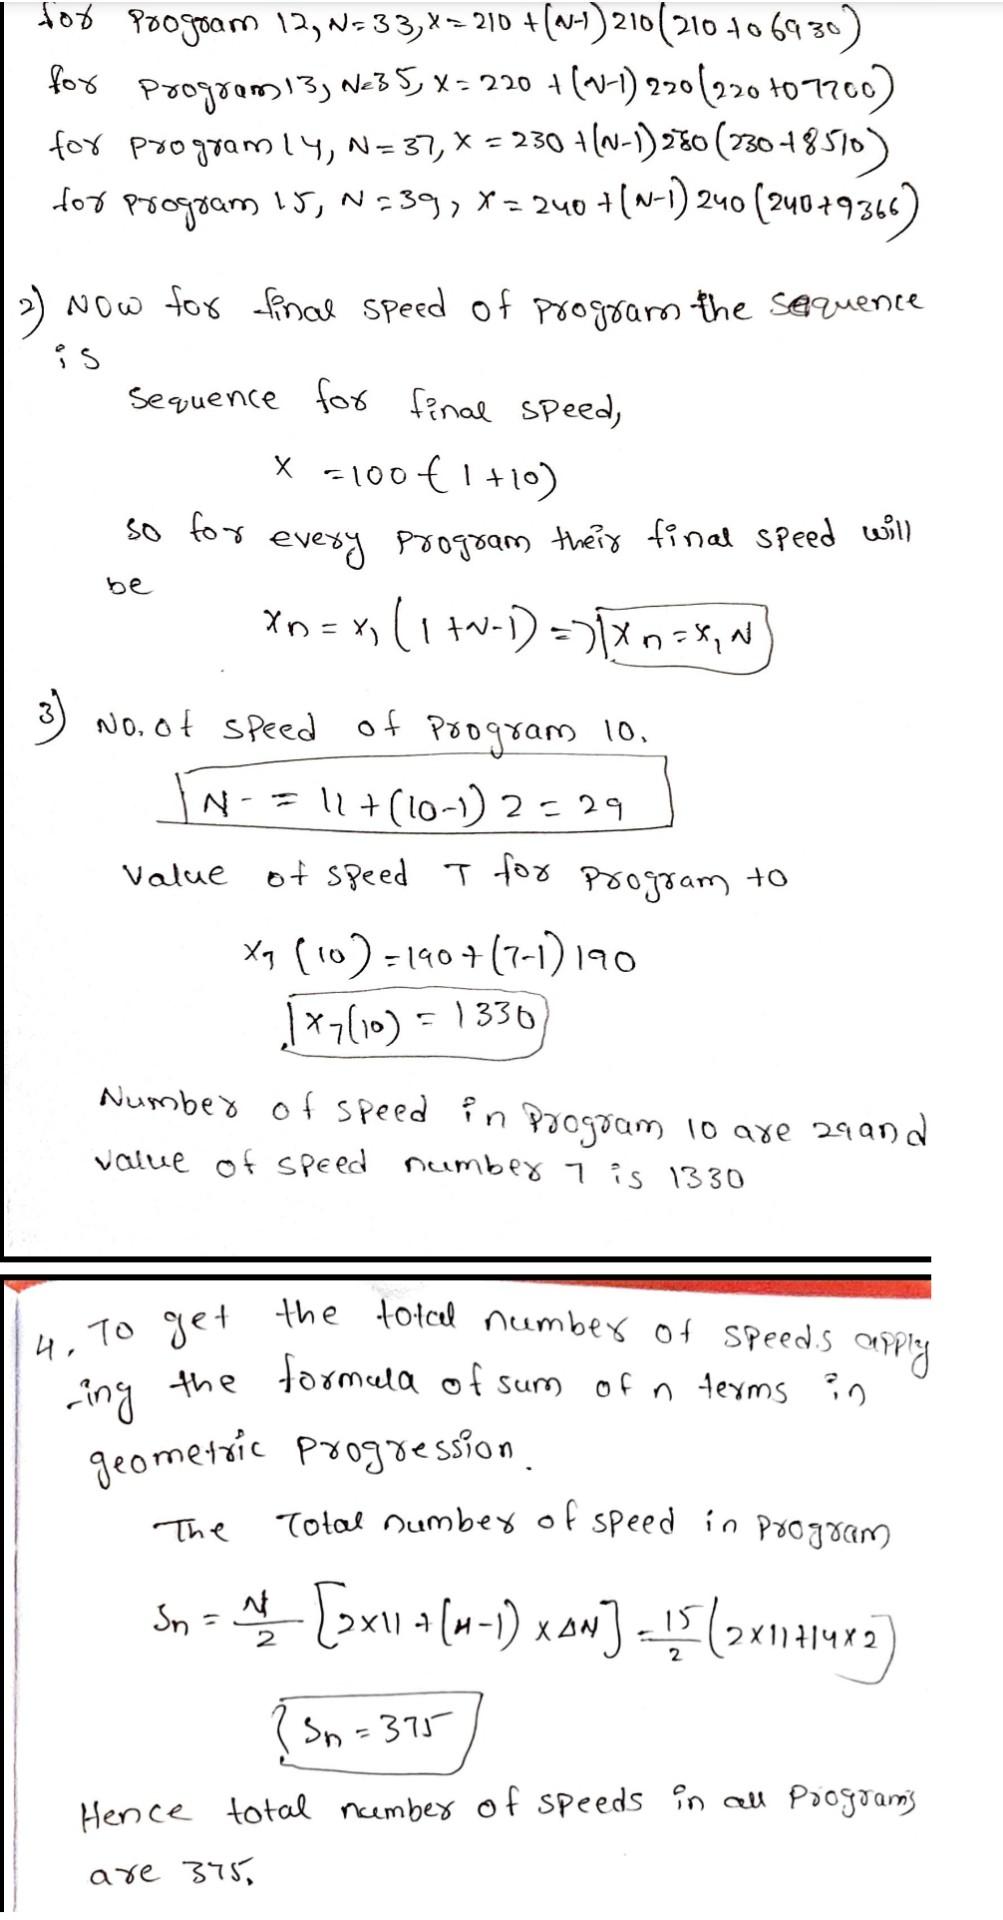 for Program 12, N=33, X=210+(N-1)210(210 to 6930)
for Program13, N=35, X=220+(N-1)220(220 to 7700)
for program 14, N=37, X=230+(N-1)230(230+8510)
for program 15, N=39, X=240+(N-1)240(240+9366)
2) NOW for final speed of program the sequence
is
Sequence for final speed,
X =100(1+10)
so for every program their final speed will
be
Xn = X1(1+N-1) => Xn=X1N
3) NO. of speed of Program 10.
N- = 11+(10-1)2=29
Value of speed 7 for Program to
X7(10)=190+(7-1)190
X7(10)=1330
Number of speed in Program 10 are 29 and
value of speed number 7 is 1330
4. To get the total number of speeds apply
-ing the formula of sum of n terms in
geometric Progression.
The Total number of speed in program
Sn = N/2 [2x11+(N-1)xΔN] = 15/2 (2x11+14x2)
Sn=375
Hence total number of speeds in all Programs
are 375.